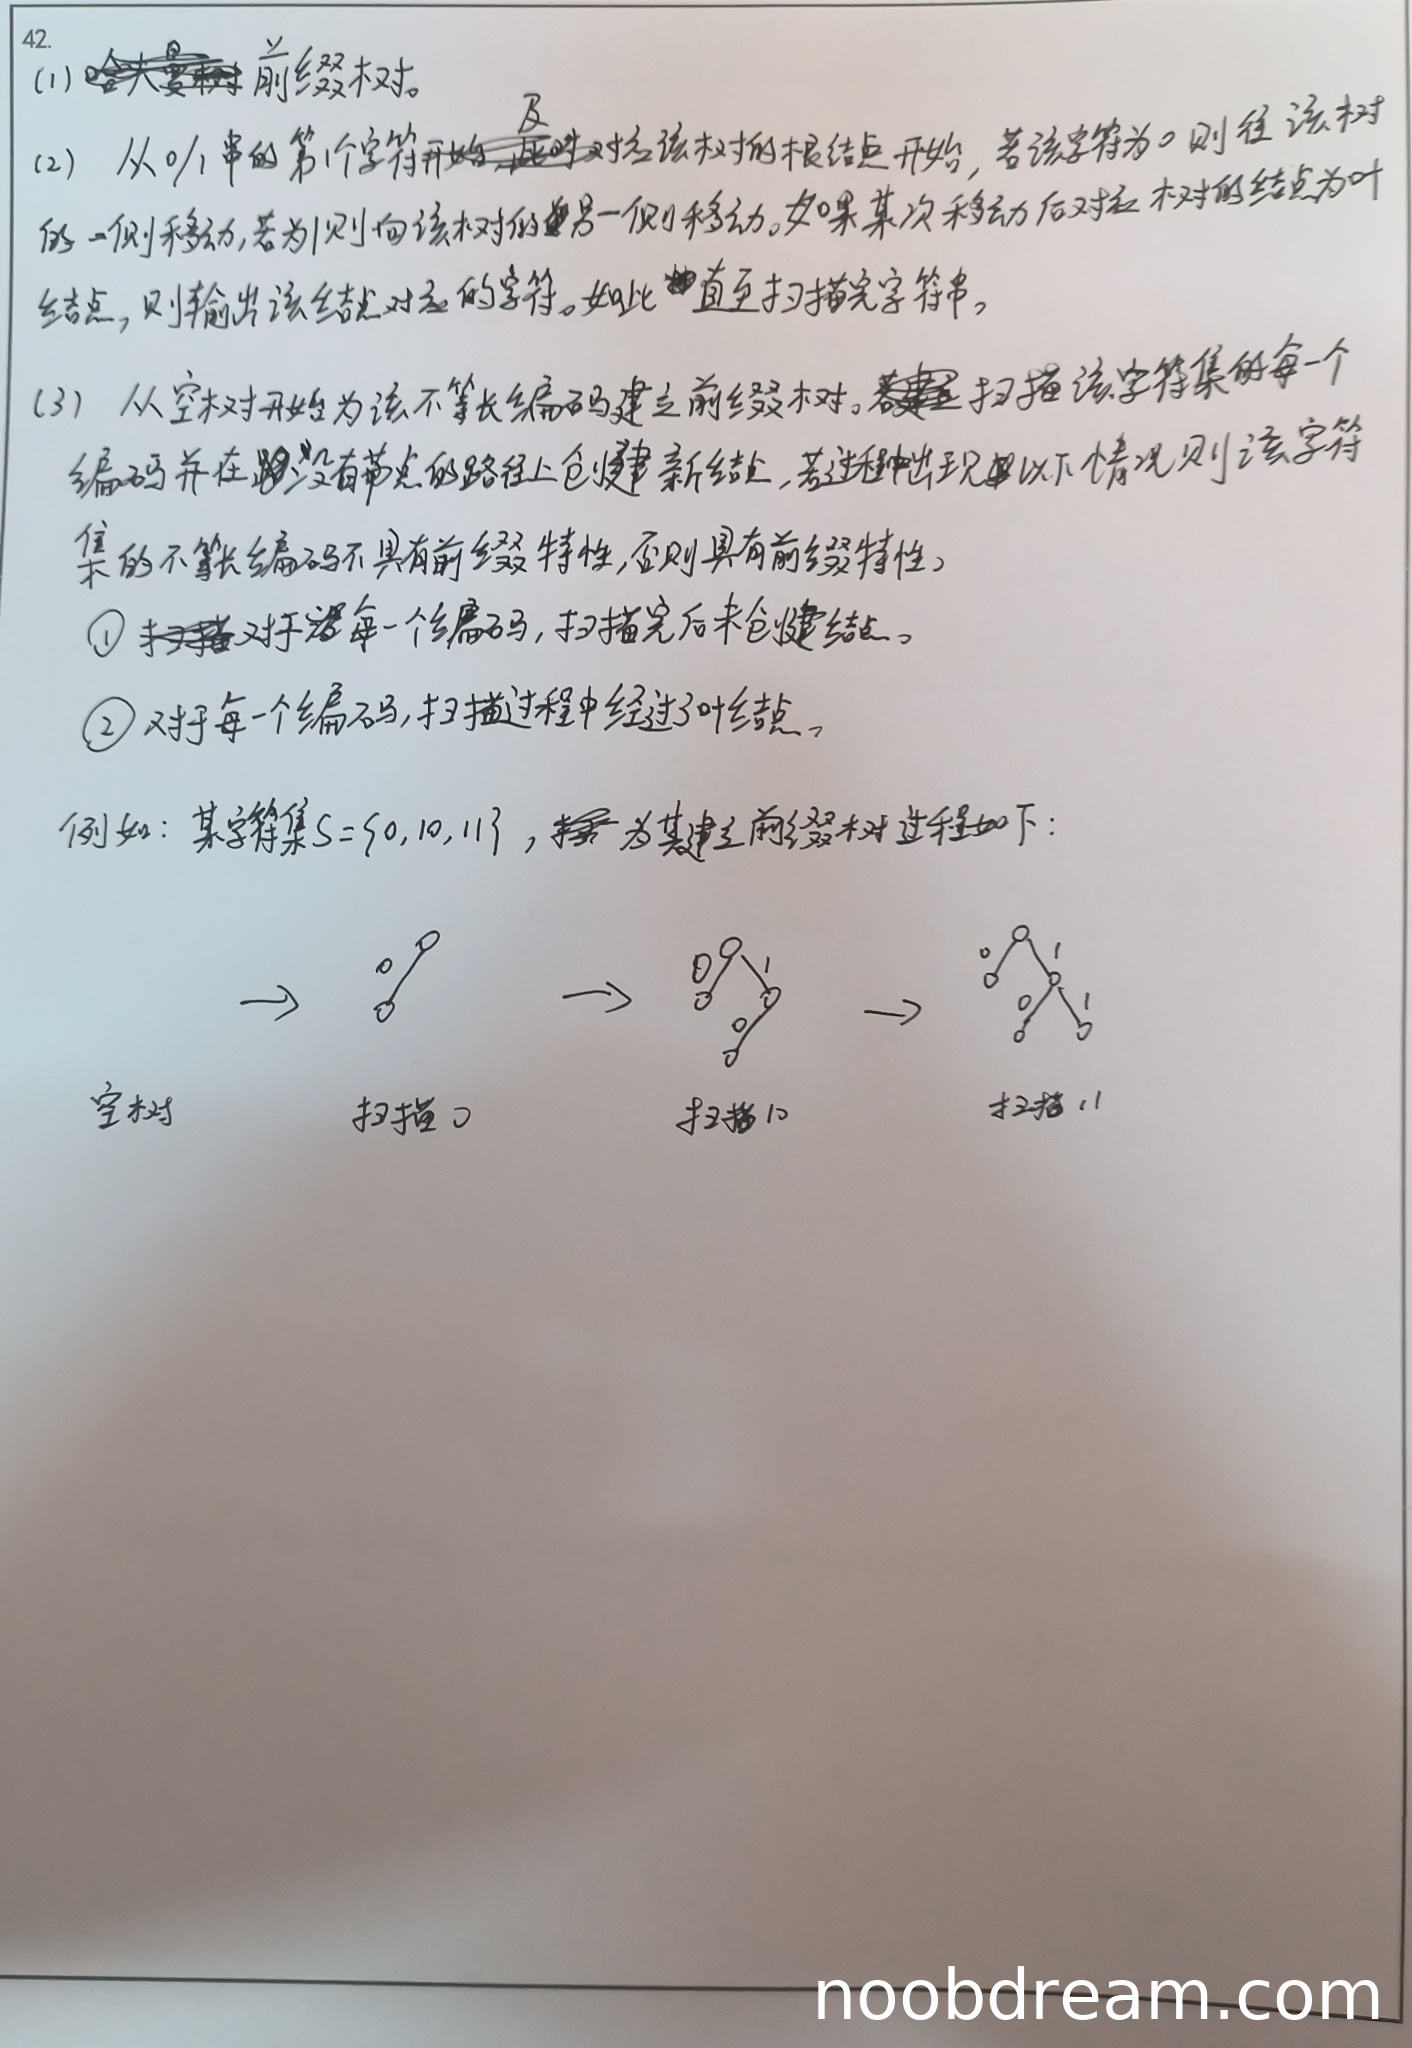 42.
(1) 前缀树。
(2) 从0/1串的第1个字符开始及对应该树的根结点开始,若该字符为0则往该树
的一侧移动,若为1则向该树的另一侧移动。如果某次移动后对应树的结点为叶
结点,则输出该结点对应的字符。如此直至扫描完字符串。
(3) 从空树开始为该不等长编码建立前缀树。扫描该字符集的每一个
编码并在没有节点的路径上创建新结点,若过程中出现以下情况则该字符
集的不等长编码不具有前缀特性,否则具有前缀特性。
① 对于每一个编码,扫描完后未创建结点。
② 对于每一个编码,扫描过程中经过了叶结点。
例如:某字符集S={0,10,11},为其建立前缀树过程如下:
0 0 1 0 1
0 0 1
空树 扫描0 扫描10 扫描11
noobdream.com